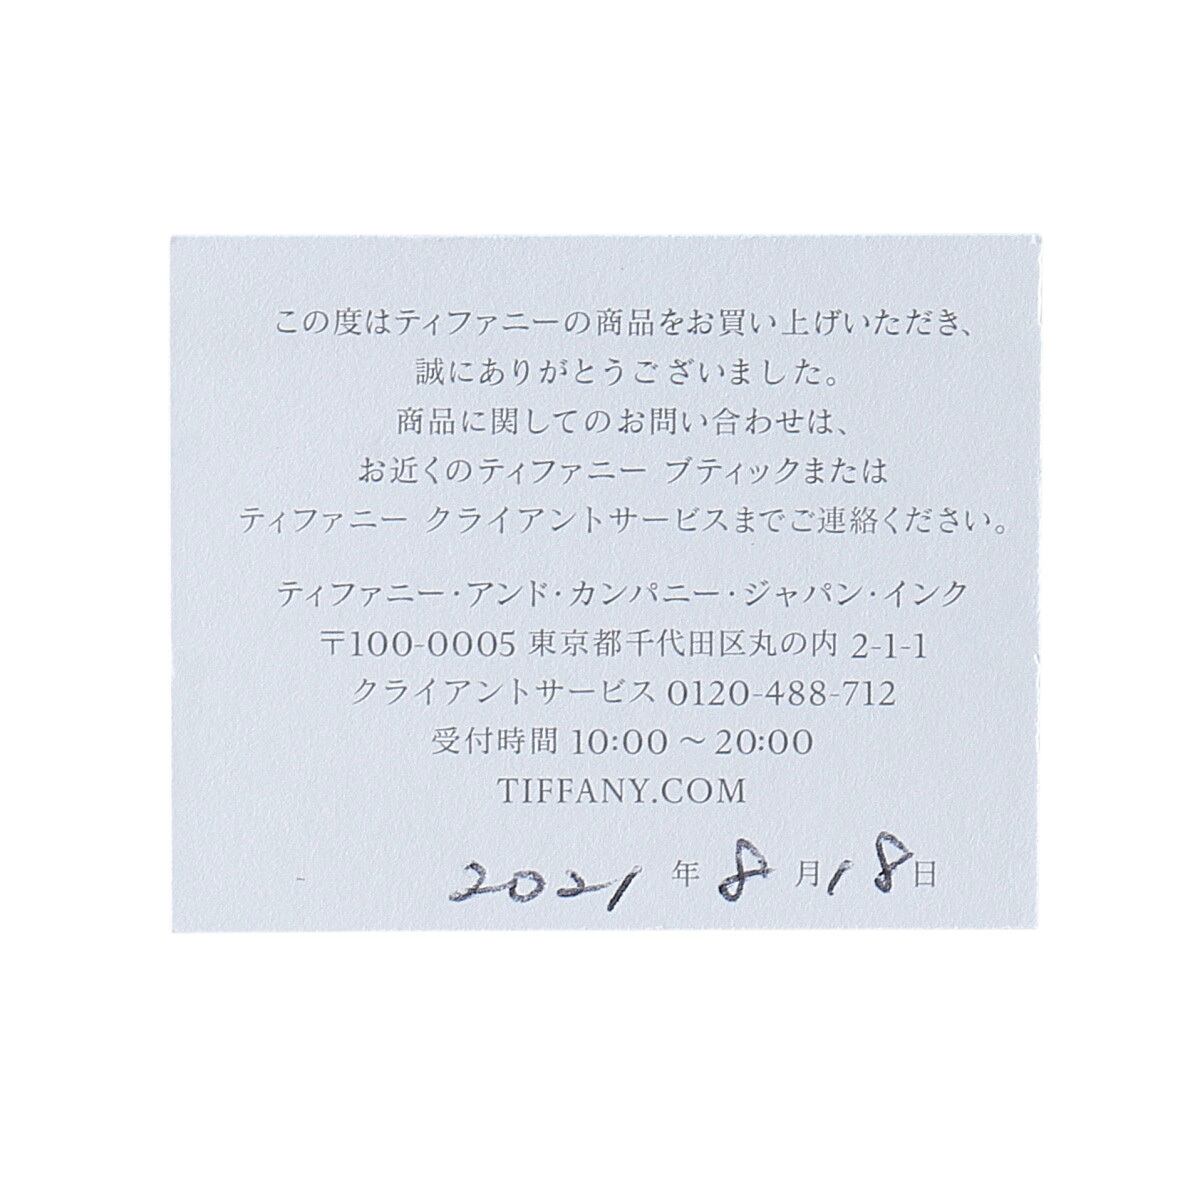 この度はティファニーの商品をお買い上げいただき、
誠にありがとうございました。
商品に関してのお問い合わせは、
お近くのティファニー ブティックまたは
ティファニー クライアントサービスまでご連絡ください。
ティファニー・アンド・カンパニー・ジャパン・インク
〒100-0005 東京都千代田区丸の内 2-1-1
クライアントサービス 0120-488-712
受付時間 10:00 ～ 20:00
TIFFANY.COM
2021 年 8 月 18 日